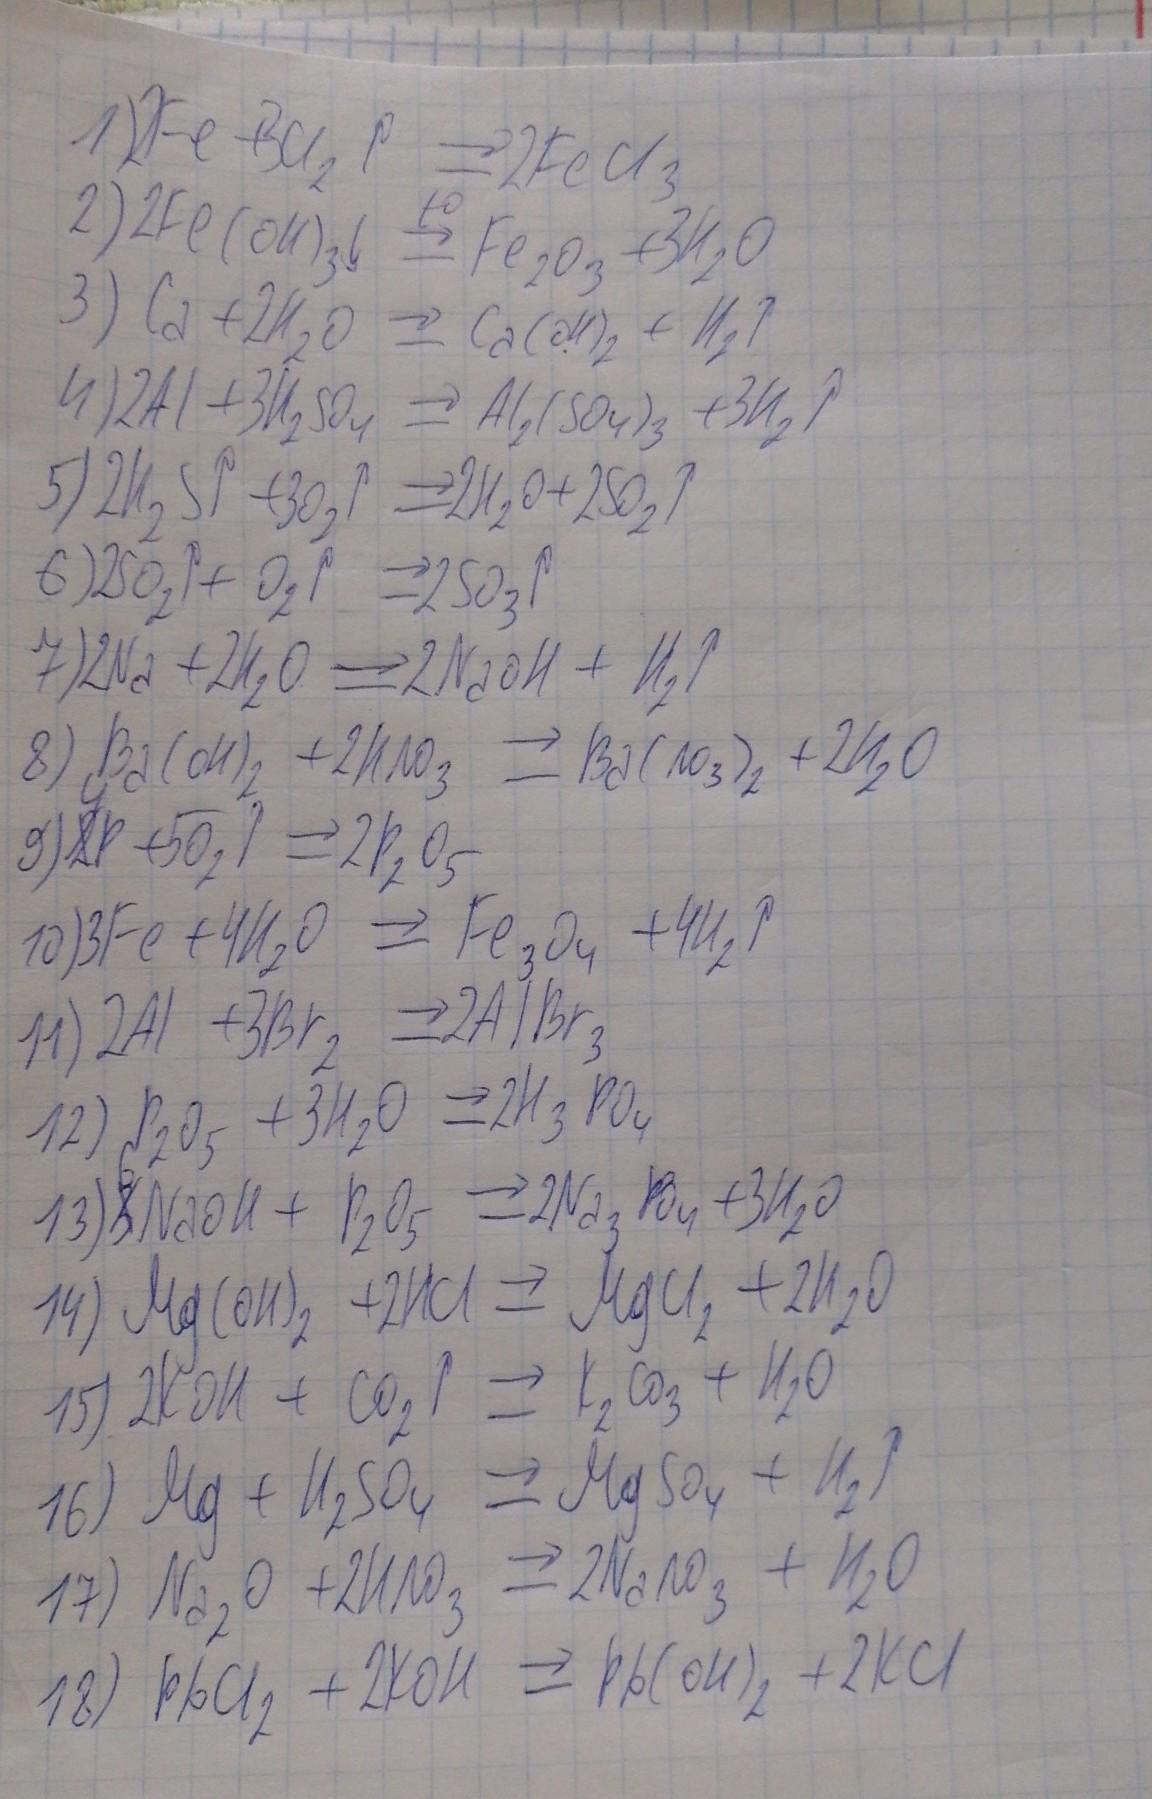 1) 2Fe + 3Cl₂↑ ⇒ 2FeCl₃
2) 2Fe(OH)₃↓ ⇒ t° Fe₂O₃ + 3H₂O
3) Ca + 2H₂O ⇒ Ca(OH)₂ + H₂↑
4) 2Al + 3H₂SO₄ ⇒ Al₂(SO₄)₃ + 3H₂↑
5) 2H₂S↑ + 3O₂↑ ⇒ 2H₂O + 2SO₂↑
6) 2SO₂↑ + O₂↑ ⇒ 2SO₃↑
7) 2Na + 2H₂O ⇒ 2NaOH + H₂↑
8) Ba(OH)₂ + 2HNO₃ ⇒ Ba(NO₃)₂ + 2H₂O
9) 4P + 5O₂↑ ⇒ 2P₂O₅
10) 3Fe + 4H₂O ⇒ Fe₃O₄ + 4H₂↑
11) 2Al + 3Br₂ ⇒ 2AlBr₃
12) P₂O₅ + 3H₂O ⇒ 2H₃PO₄
13) 6NaOH + P₂O₅ ⇒ 2Na₃PO₄ + 3H₂O
14) Mg(OH)₂ + 2HCl ⇒ MgCl₂ + 2H₂O
15) 2KOH + CO₂↑ ⇒ K₂CO₃ + H₂O
16) Mg + H₂SO₄ ⇒ MgSO₄ + H₂↑
17) Na₂O + 2HNO₃ ⇒ 2NaNO₃ + H₂O
18) PbCl₂ + 2KOH ⇒ Pb(OH)₂ + 2KCl